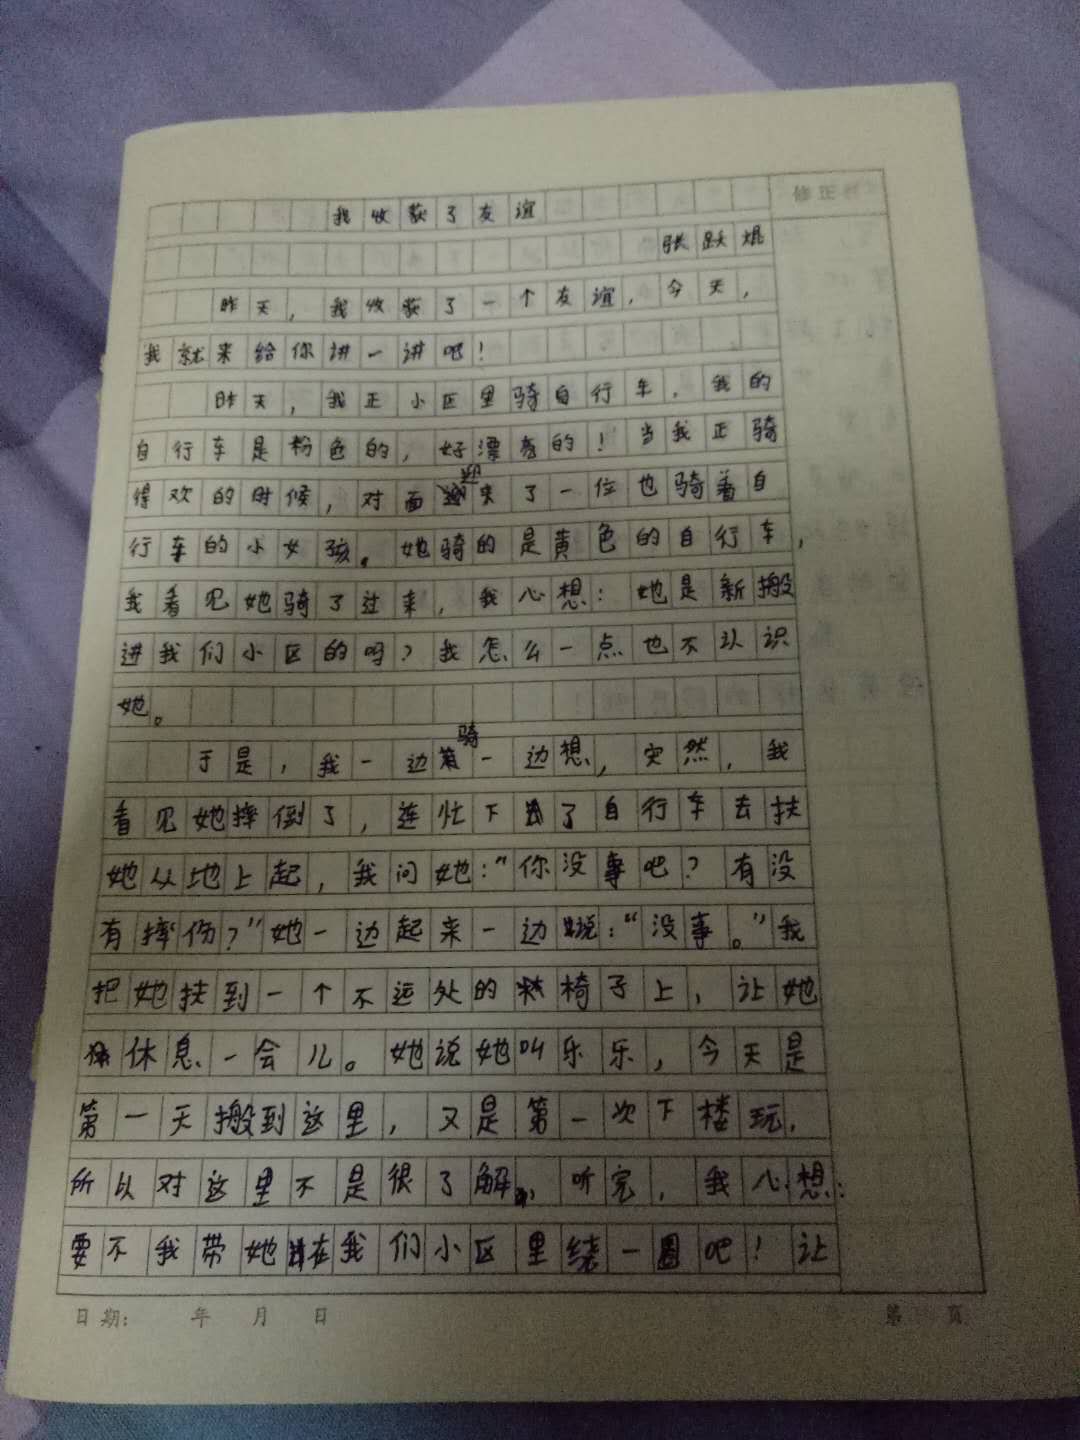 修正栏
我收获了友谊
张跃焜
昨天，我收获了一个友谊，今天，
我就来给你讲一讲吧！
昨天，我正小区里骑自行车，我的
自行车是粉色的，好漂亮的！当我正骑
得欢的时候，对面迎来了一位也骑着自
行车的小女孩。她骑的是黄色的自行车，
我看见她骑了过来，我心想：她是新搬
进我们小区的吗？我怎么一点也不认识
她。
于是，我一边骑一边想，突然，我
看见她摔倒了，连忙下了自行车去扶
她从地上起，我问她：“你没事吧？有没
有摔伤？”她一边起来一边说：“没事。”我
把她扶到一个不远处的椅子上，让她
休息一会儿。她说她叫乐乐，今天是
第一天搬到这里，又是第一次下楼玩，
所以对这里不是很了解，听完，我心想：
要不我带她在我们小区里绕一圈吧！让
日期： 年 月 日 第 页